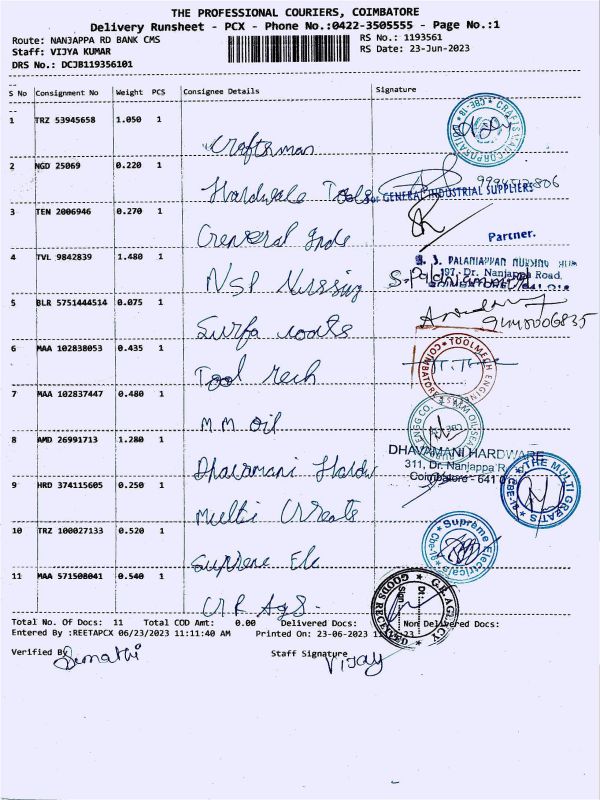 THE PROFESSIONAL COURIERS, COIMBATORE
Delivery Runsheet - PCX - Phone No.:0422-3505555 - Page No.:1
Route: NANJAPPA RD BANK CMS RS No.: 1193561
Staff: VIJYA KUMAR RS Date: 23-Jun-2023
DRS No.: DCJB119356101
S No Consignment No Weight PCS Consignee Details Signature
1 TRZ 53945658 1.050 1
Craftsman
2 NGD 25069 0.220 1
Hardware Tools
for GENERAL INDUSTRIAL SUPPLIERS
3 TEN 2006946 0.270 1
General Inds
Partner.
4 TVL 9842839 1.480 1
NSP Nursing
197, Dr. Nanjappa Road,
5 BLR 5751444514 0.075 1
Surfa coats
6 MAA 102838053 0.435 1
Tool Tech
7 MAA 102837447 0.480 1
M.M oil
8 AMD 26991713 1.280 1
Dhavamani Hardw
DHAVAMANI HARDWARE
311, Dr. Nanjappa R
Coimbatore - 641 0
9 HRD 374115605 0.250 1
THE MULTI GRATIS
10 TRZ 100027133 0.520 1
Supreme Ele
Supreme Electricals
11 MAA 571508041 0.540 1
G.R. AGENCY
GOODS RECEIVED
Total No. Of Docs: 11 Total COD Amt: 0.00 Delivered Docs: Non Delivered Docs:
Entered By :REETAPCX 06/23/2023 11:11:40 AM Printed On: 23-06-2023
Verified By Sumathi Staff Signature Vijay